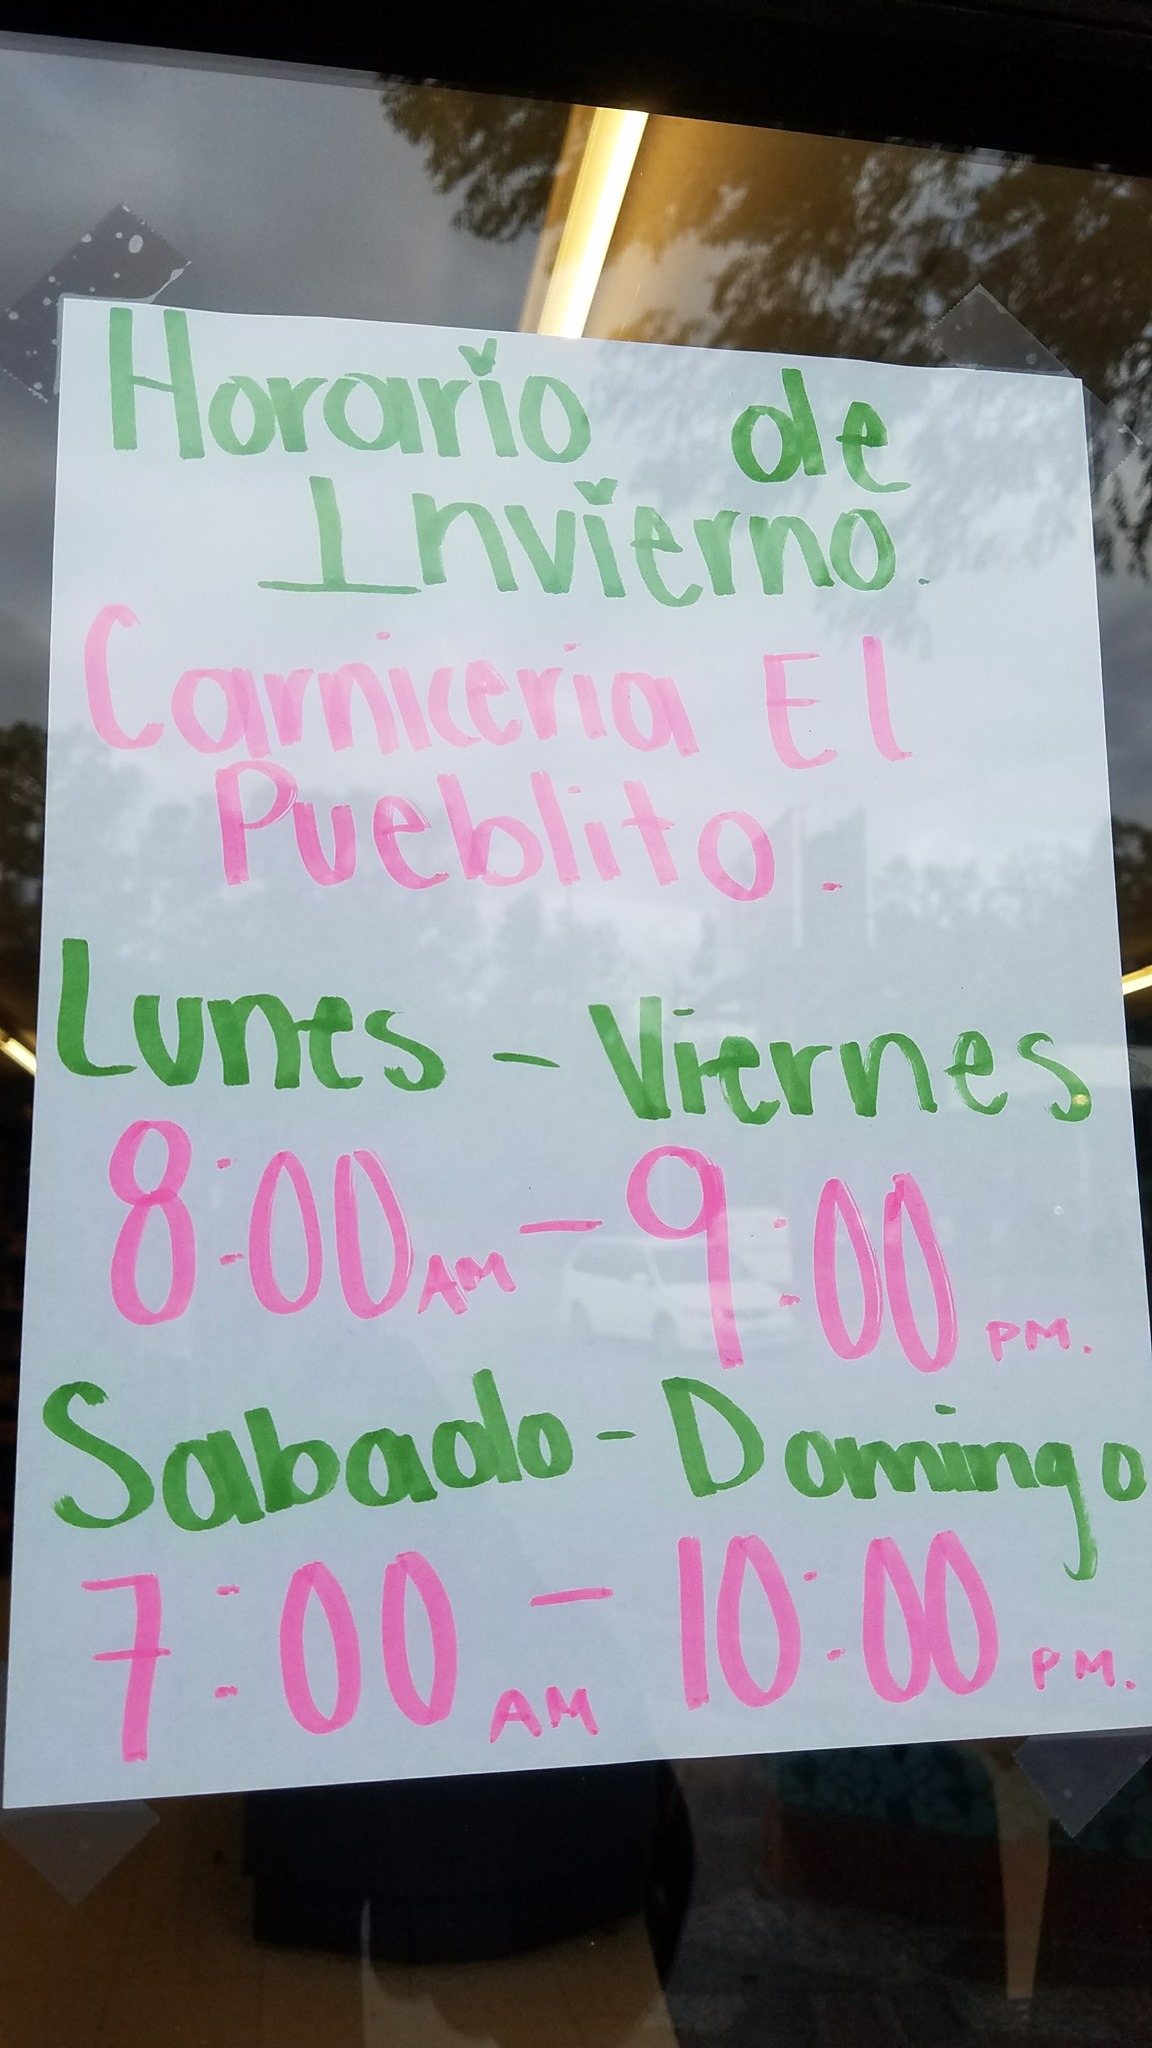 Horario de
Invierno.
Carniceria El
Pueblito.
Lunes - Viernes
8:00 AM - 9:00 PM.
Sabado - Domingo
7:00 AM - 10:00 PM.